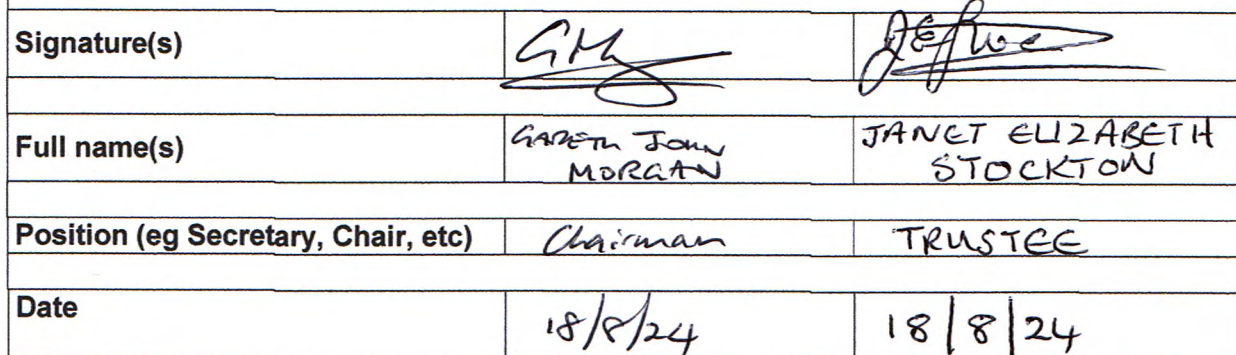 Signature(s)
Full name(s) GARETH JOHN MORGAN JANET ELIZABETH STOCKTON
Position (eg Secretary, Chair, etc) Chairman TRUSTEE
Date 18/8/24 18/8/24